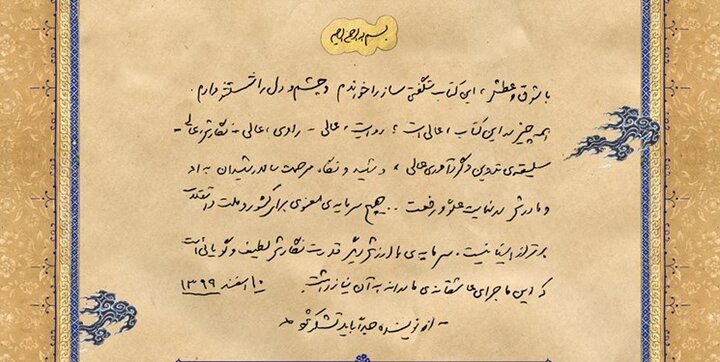 بسم الله الرحمن الرحیم
با شوق و عطش، این کتاب شگفتی ساز را خواندم و چشم و دل را شستشو دادم.
همه چیز در این کتاب، عالی است؛ روایت، عالی - راوی، عالی - نگارش، عالی -
سلیقه‌ی تدوین و گردآوری عالی، و شهید و نگاه مرحمت سالار شهیدان به او
و مادرش در نهایت علوّ و رفعت .. هیچ سرمایه‌ی معنوی برای کشور و ملت و انقلاب
برتر از اینها نیست. سرمایه‌ی با ارزش دیگر قدرت نگارش لطیف و گویائی است
که این ماجرای عاشقانه‌ی مادرانه به آن نیاز داشت. ۱۰ اسفند ۱۳۹۹
- از نویسنده جداً باید تشکر شود -